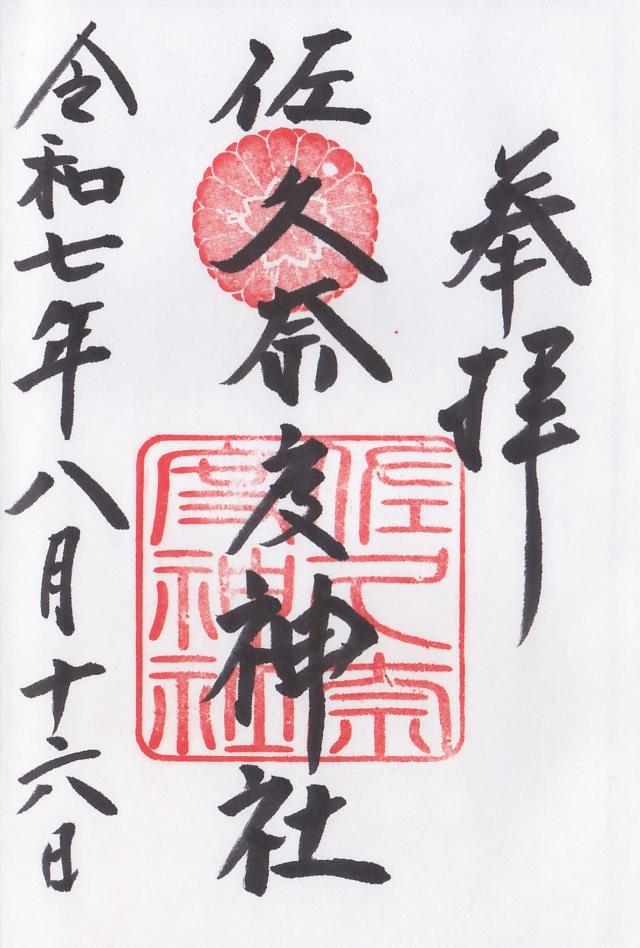 奉拝
佐久奈度神社
佐久奈
度神社
令和七年八月十六日